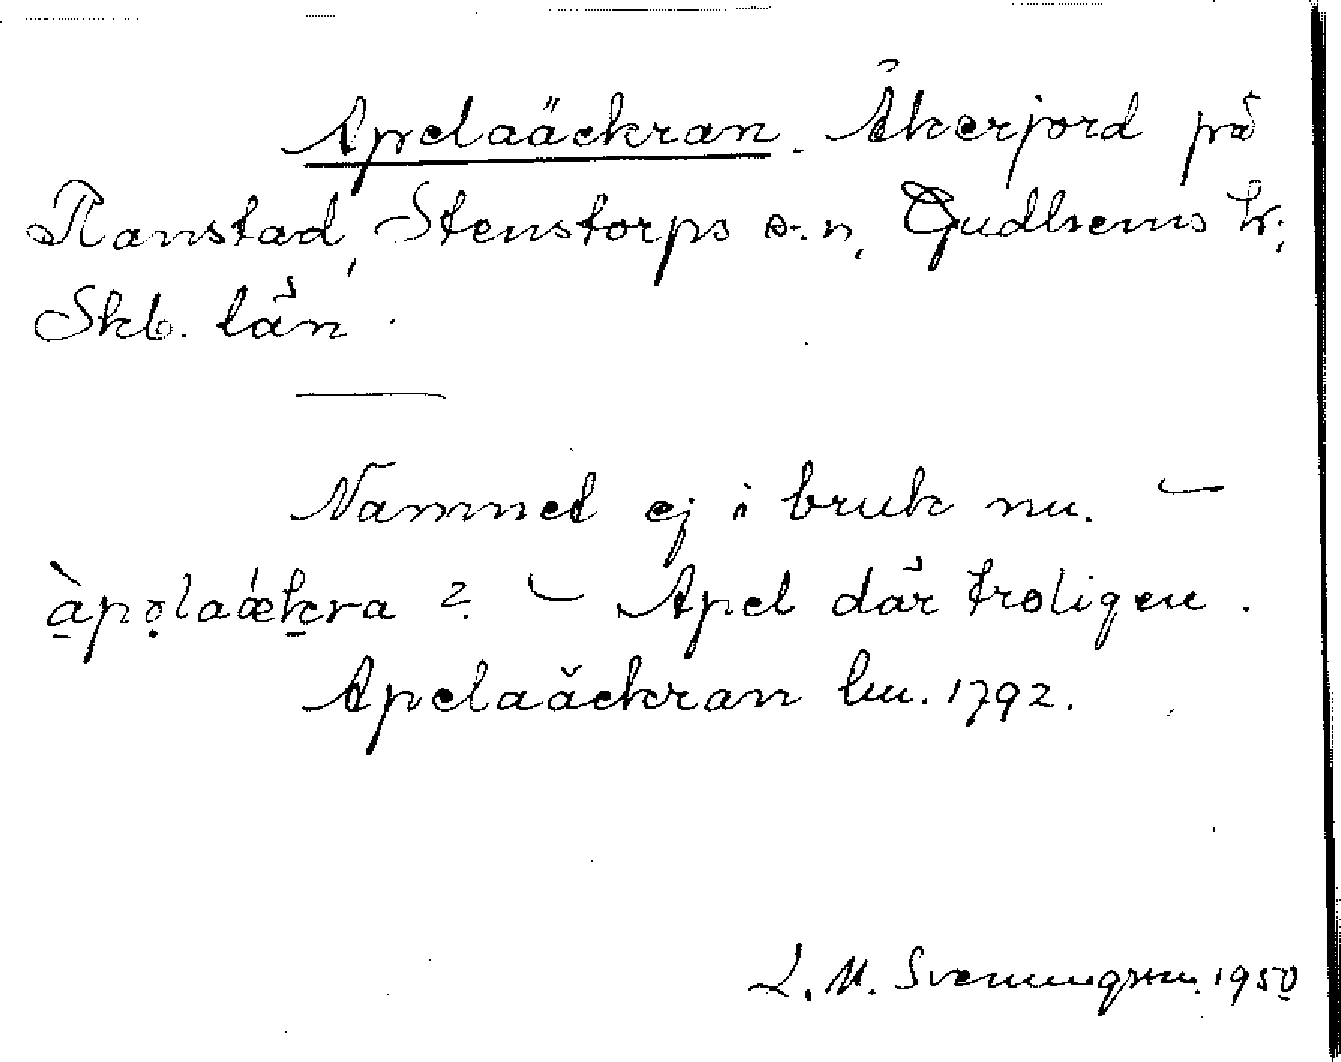 Apelaäckran. Åkerjord på
Ranstad, Stenstorps s:n, Gudhems h:,
Skb. län.
Namnet ej i bruk nu. —
àpəlaækra ? — Apel där troligen.
Apelaäckran lm. 1792.
L. M. Svenungsson. 1950